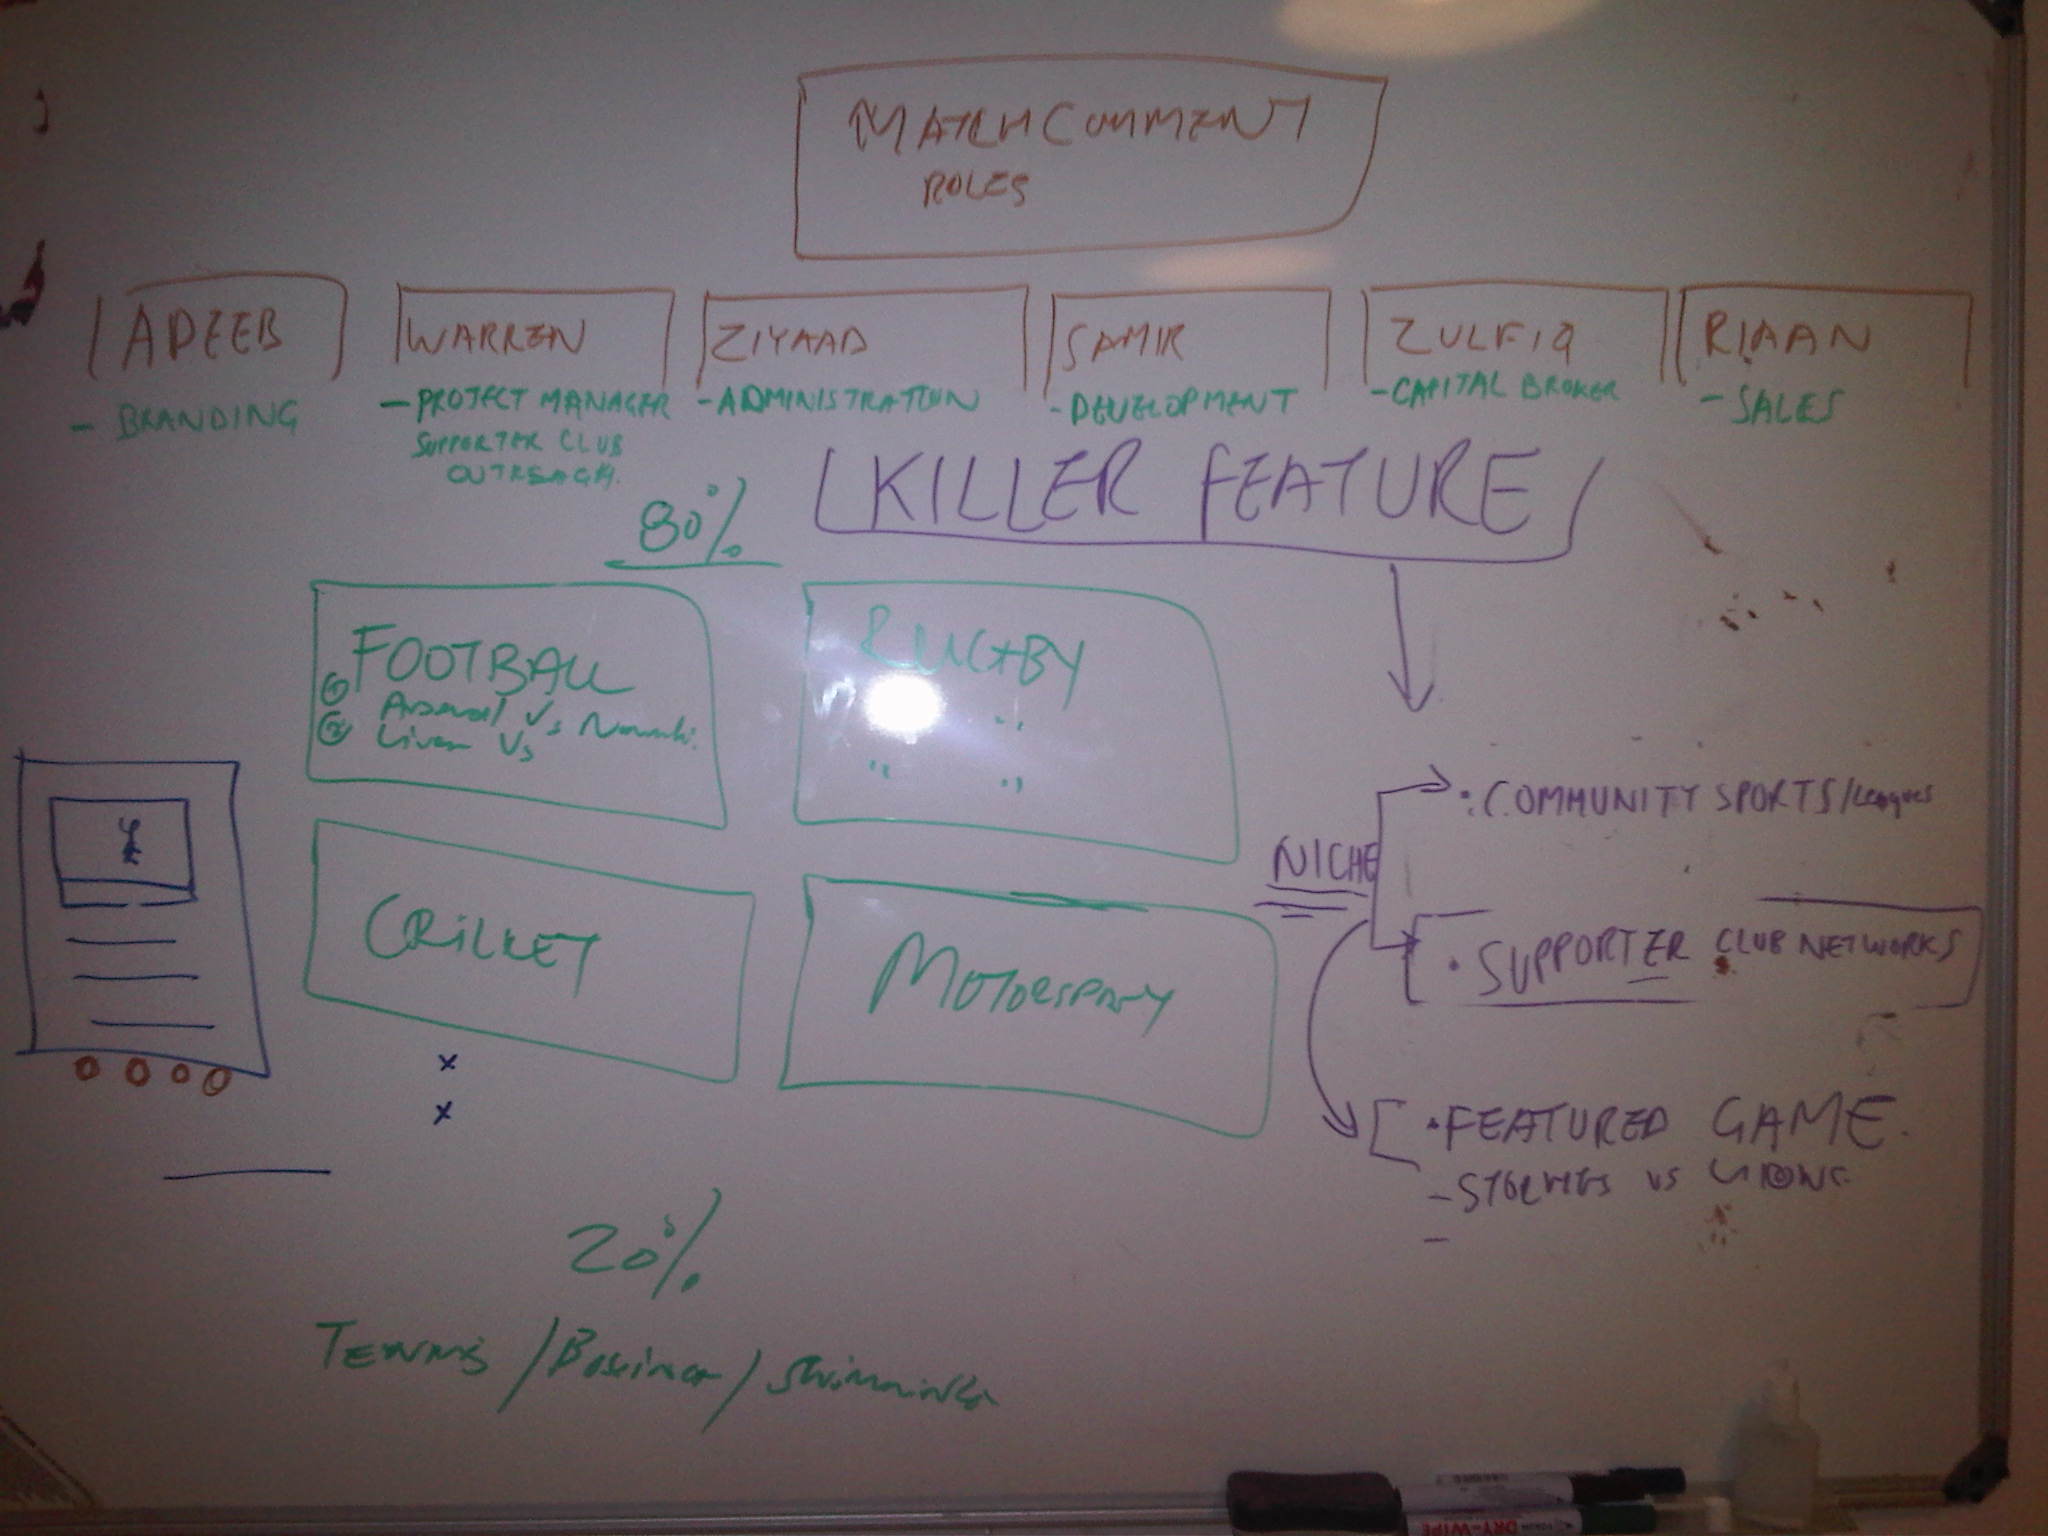 MATCHCOMMENT
ROLES
ADEEB
- BRANDING
WARREN
- PROJECT MANAGER
SUPPORTER CLUB
OUTREACH.
ZIYAAD
- ADMINISTRATION
SAMIR
- DEVELOPMENT
ZULFIQ
- CAPITAL BROKER
RIAAN
- SALES
KILLER FEATURE
80%
FOOTBALL
① Arsenal Vs
② Liver Vs
RUGBY
" "
CRICKET
MOTORSPORT
x
x
20%
TENNIS / / Swimming
NICHE
• COMMUNITY SPORTS/Leagues
• SUPPORTER CLUB NETWORKS
• FEATURED GAME.
- STORMERS VS
-
DRY-WIPE